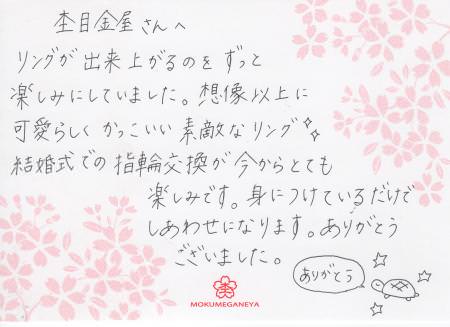 杢目金屋さんへ
リングが出来上がるのをずっと
楽しみにしていました。想像以上に
可愛らしくかっこいい素敵なリング
結婚式での指輪交換が今からとても
楽しみです。身につけているだけで
しあわせになります。ありがとう
ございました。
ありがとう
MOKUMEGANEYA